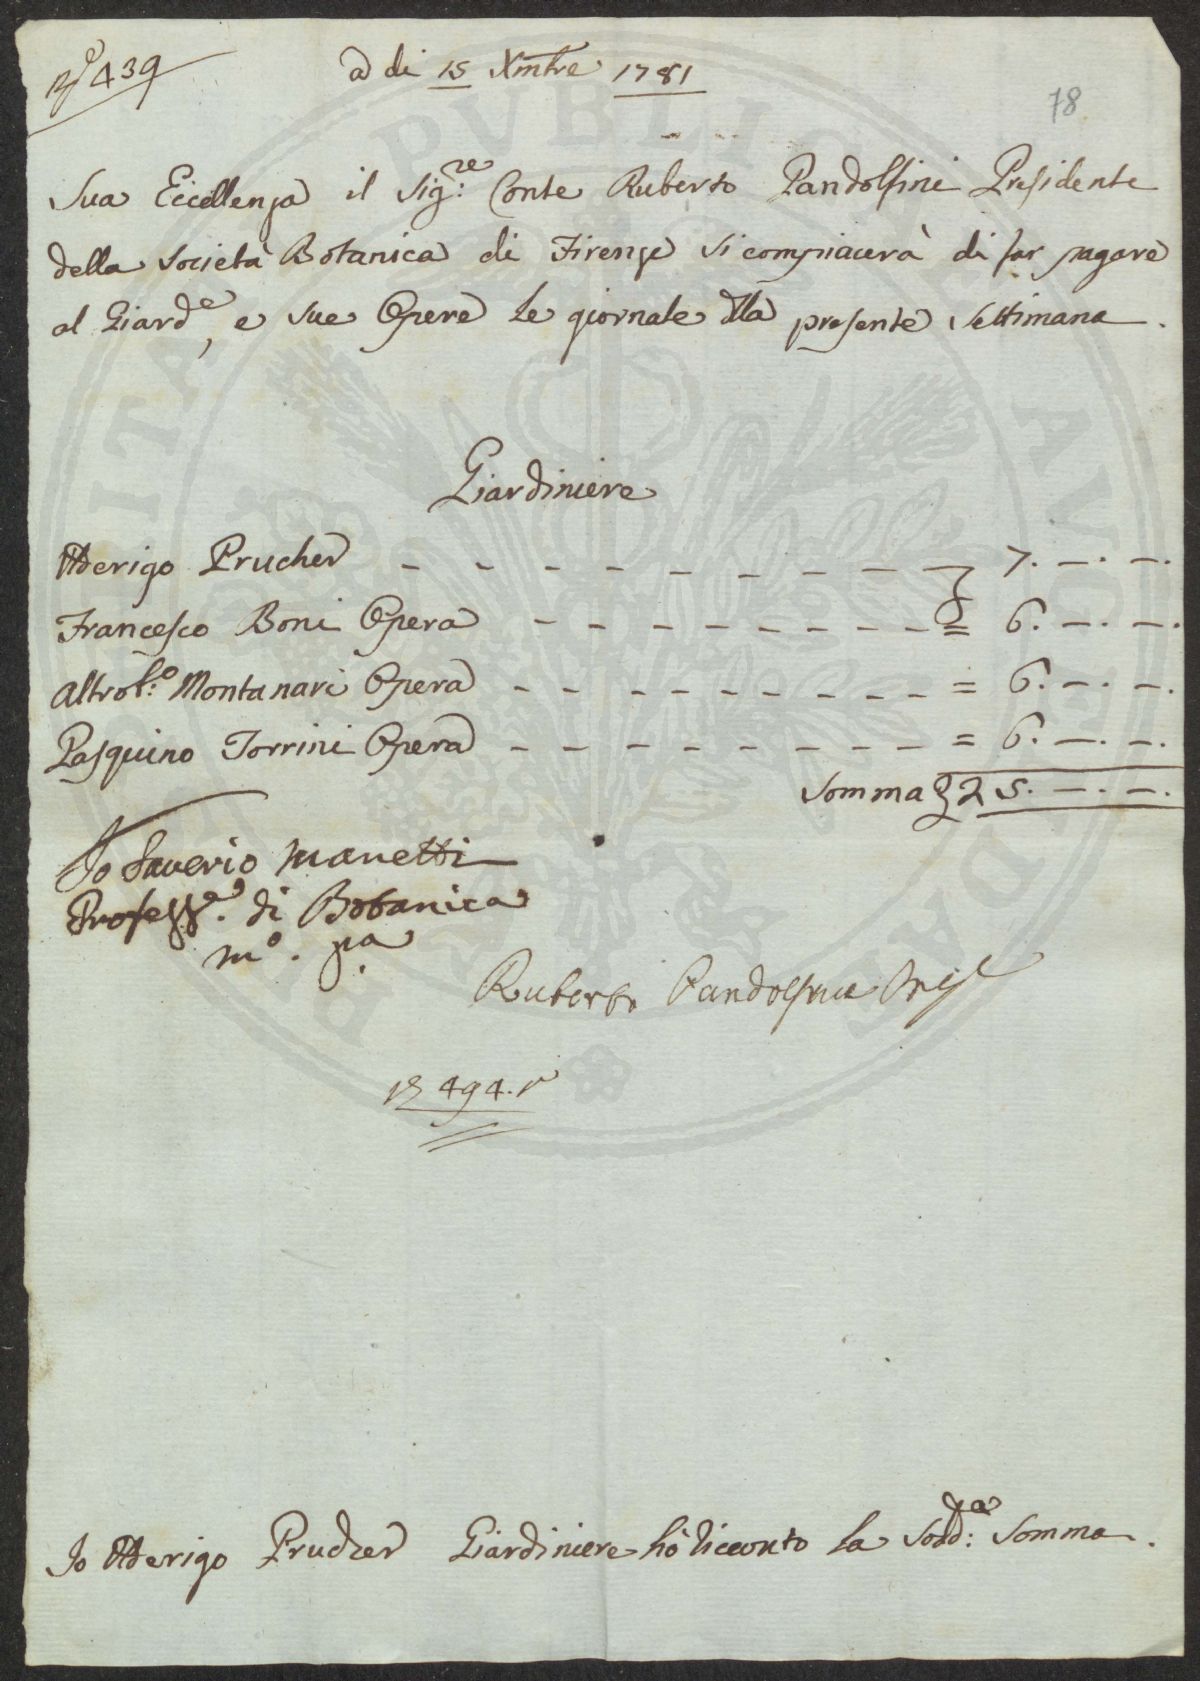 N.º 439
a di 15 Xmbre 1781
78
Sua Eccellenza il Sig:re Conte Ruberto Pandolfini Presidente
della Società Botanica di Firenze si compiacerà di far pagare
al Giard.e, e sue Opere le giornate dlla presente Settimana.
Giardiniere
Aderigo Prucher 7. —. —.
Francesco Boni Opera = 6. —. —.
Montanari Opera = 6. —. —.
Pasquino Torrini Opera = 6. —. —.
Somma 25. —. —.
Io Saverio Manetti
Profess.e di Botanica
m.o p.a
Ruberto Pandolfini
494.
Io Aderigo Prucher Giardiniere hò riceuto la Sodd:ta Somma.